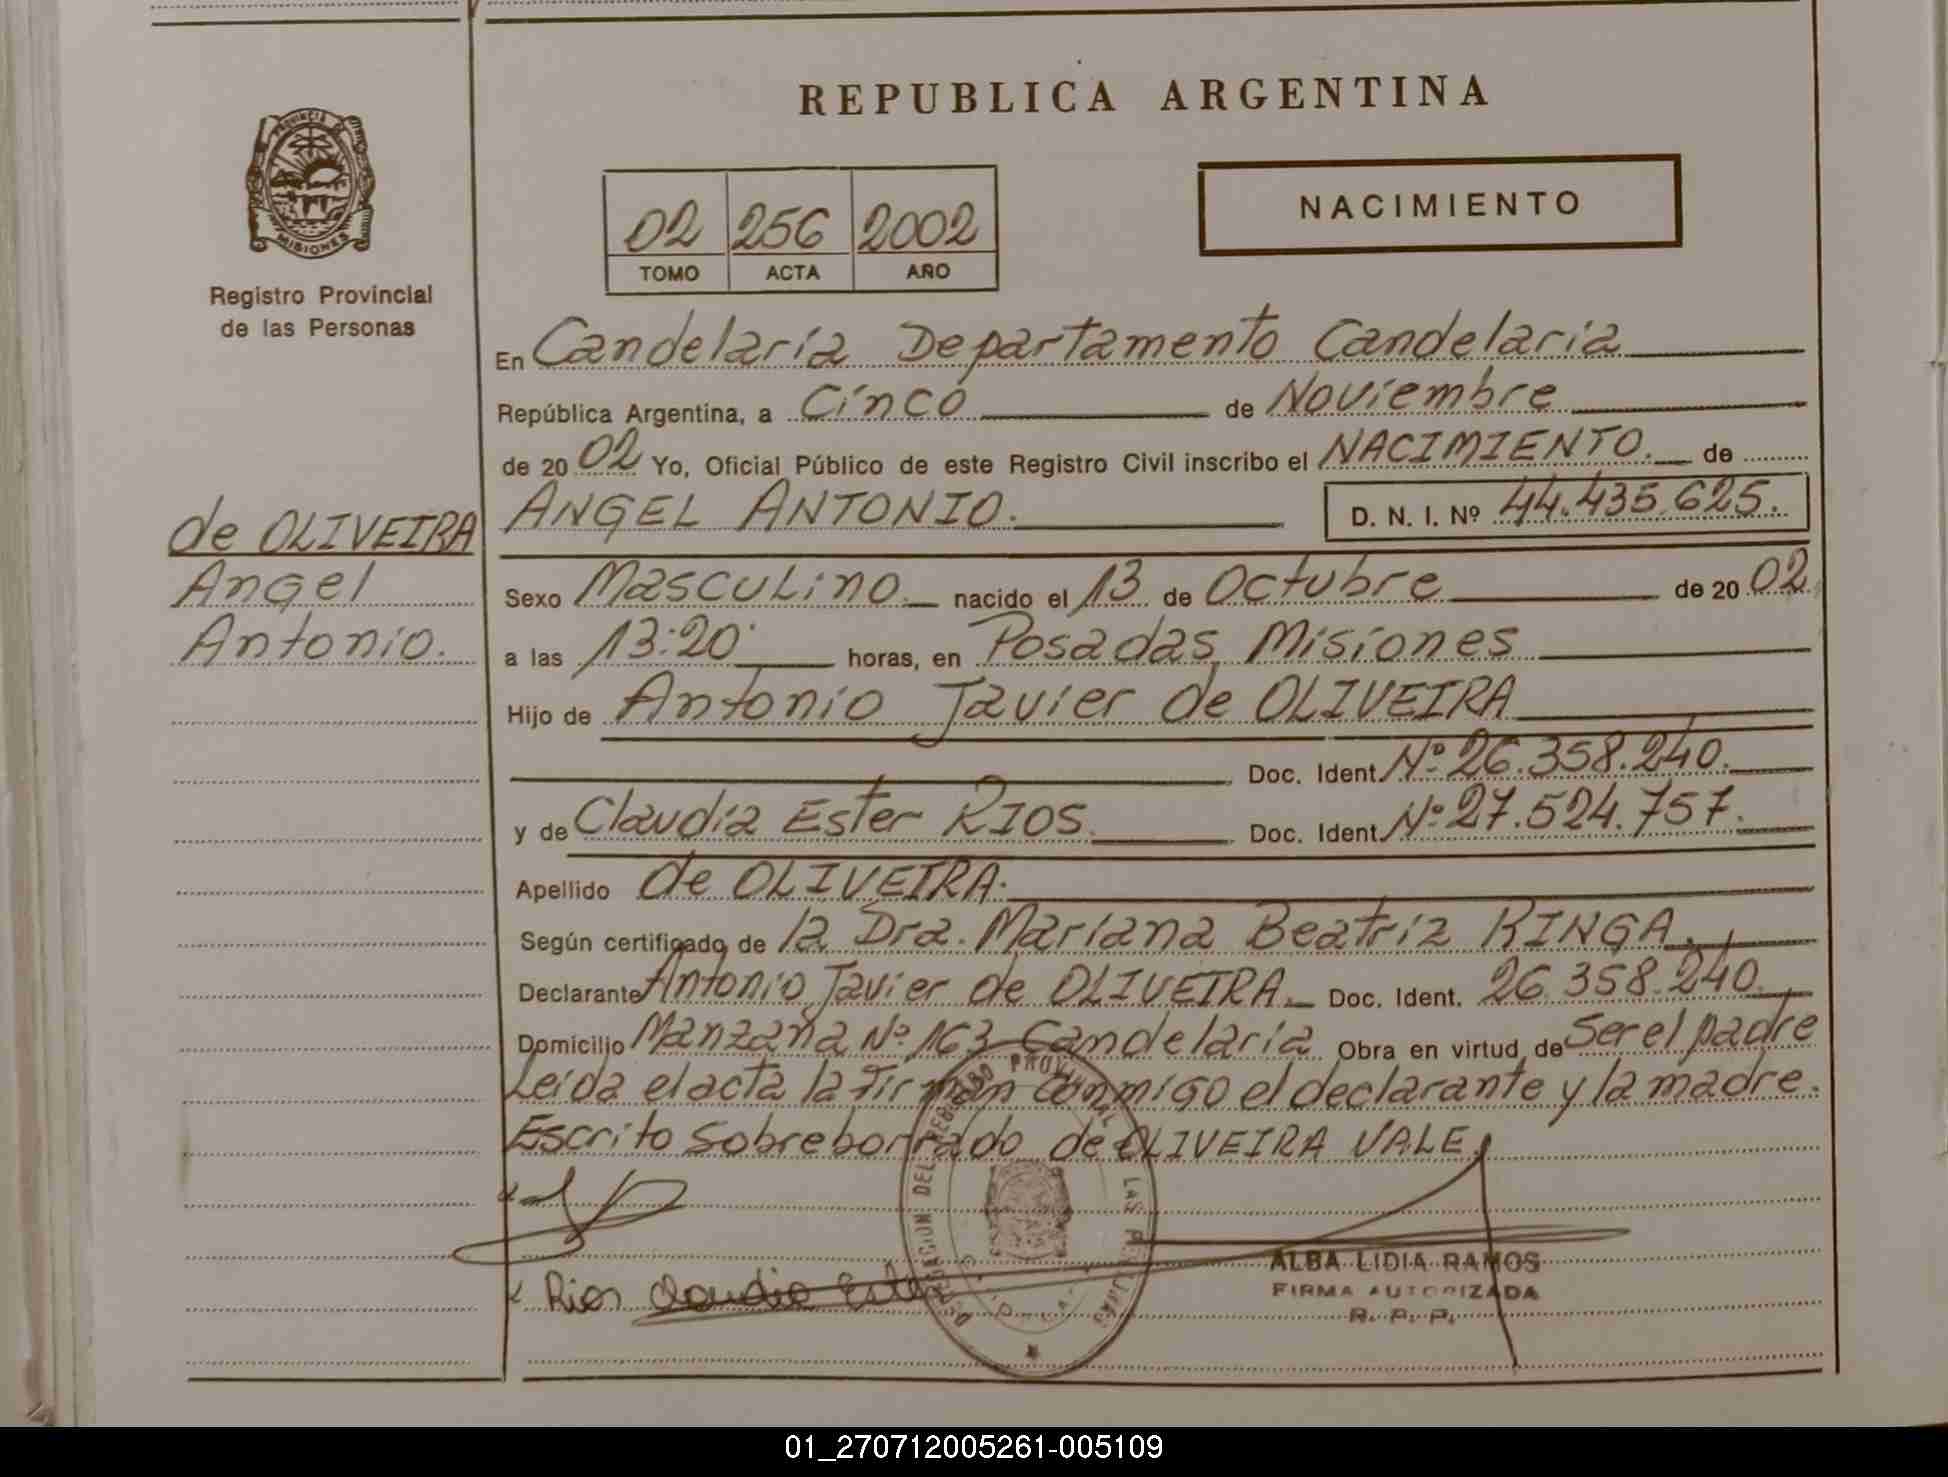 REPUBLICA ARGENTINA
PROVINCIA DE
MISIONES
Registro Provincial
de las Personas
02 256 2002
TOMO ACTA AÑO
NACIMIENTO
En Candelaria Departamento Candelaria
República Argentina, a Cinco de Noviembre
de 20 02 Yo, Oficial Público de este Registro Civil inscribo el NACIMIENTO. de
ANGEL ANTONIO. D. N. I. Nº 44.435.625.
de OLIVEIRA
Angel
Antonio.
Sexo Masculino nacido el 13 de Octubre de 20 02
a las 13:20 horas, en Posadas Misiones
Hijo de Antonio Javier de OLIVEIRA
Doc. Ident. Nº 26.358.240.
y de Claudia Ester RIOS. Doc. Ident. Nº 27.524.757.
Apellido de OLIVEIRA.
Según certificado de la Dra. Mariana Beatriz RINGA.
Declarante Antonio Javier de OLIVEIRA. Doc. Ident. 26.358.240
Domicilio Manzana Nº 163 Candelaria Obra en virtud de Ser el padre
Leida el acta la firman conmigo el declarante y la madre.
Escrito sobreborrado de OLIVEIRA VALE.
Rios Claudia Ester
ALBA LIDIA RAMOS
FIRMA AUTORIZADA
R. P. P.
01_270712005261-005109